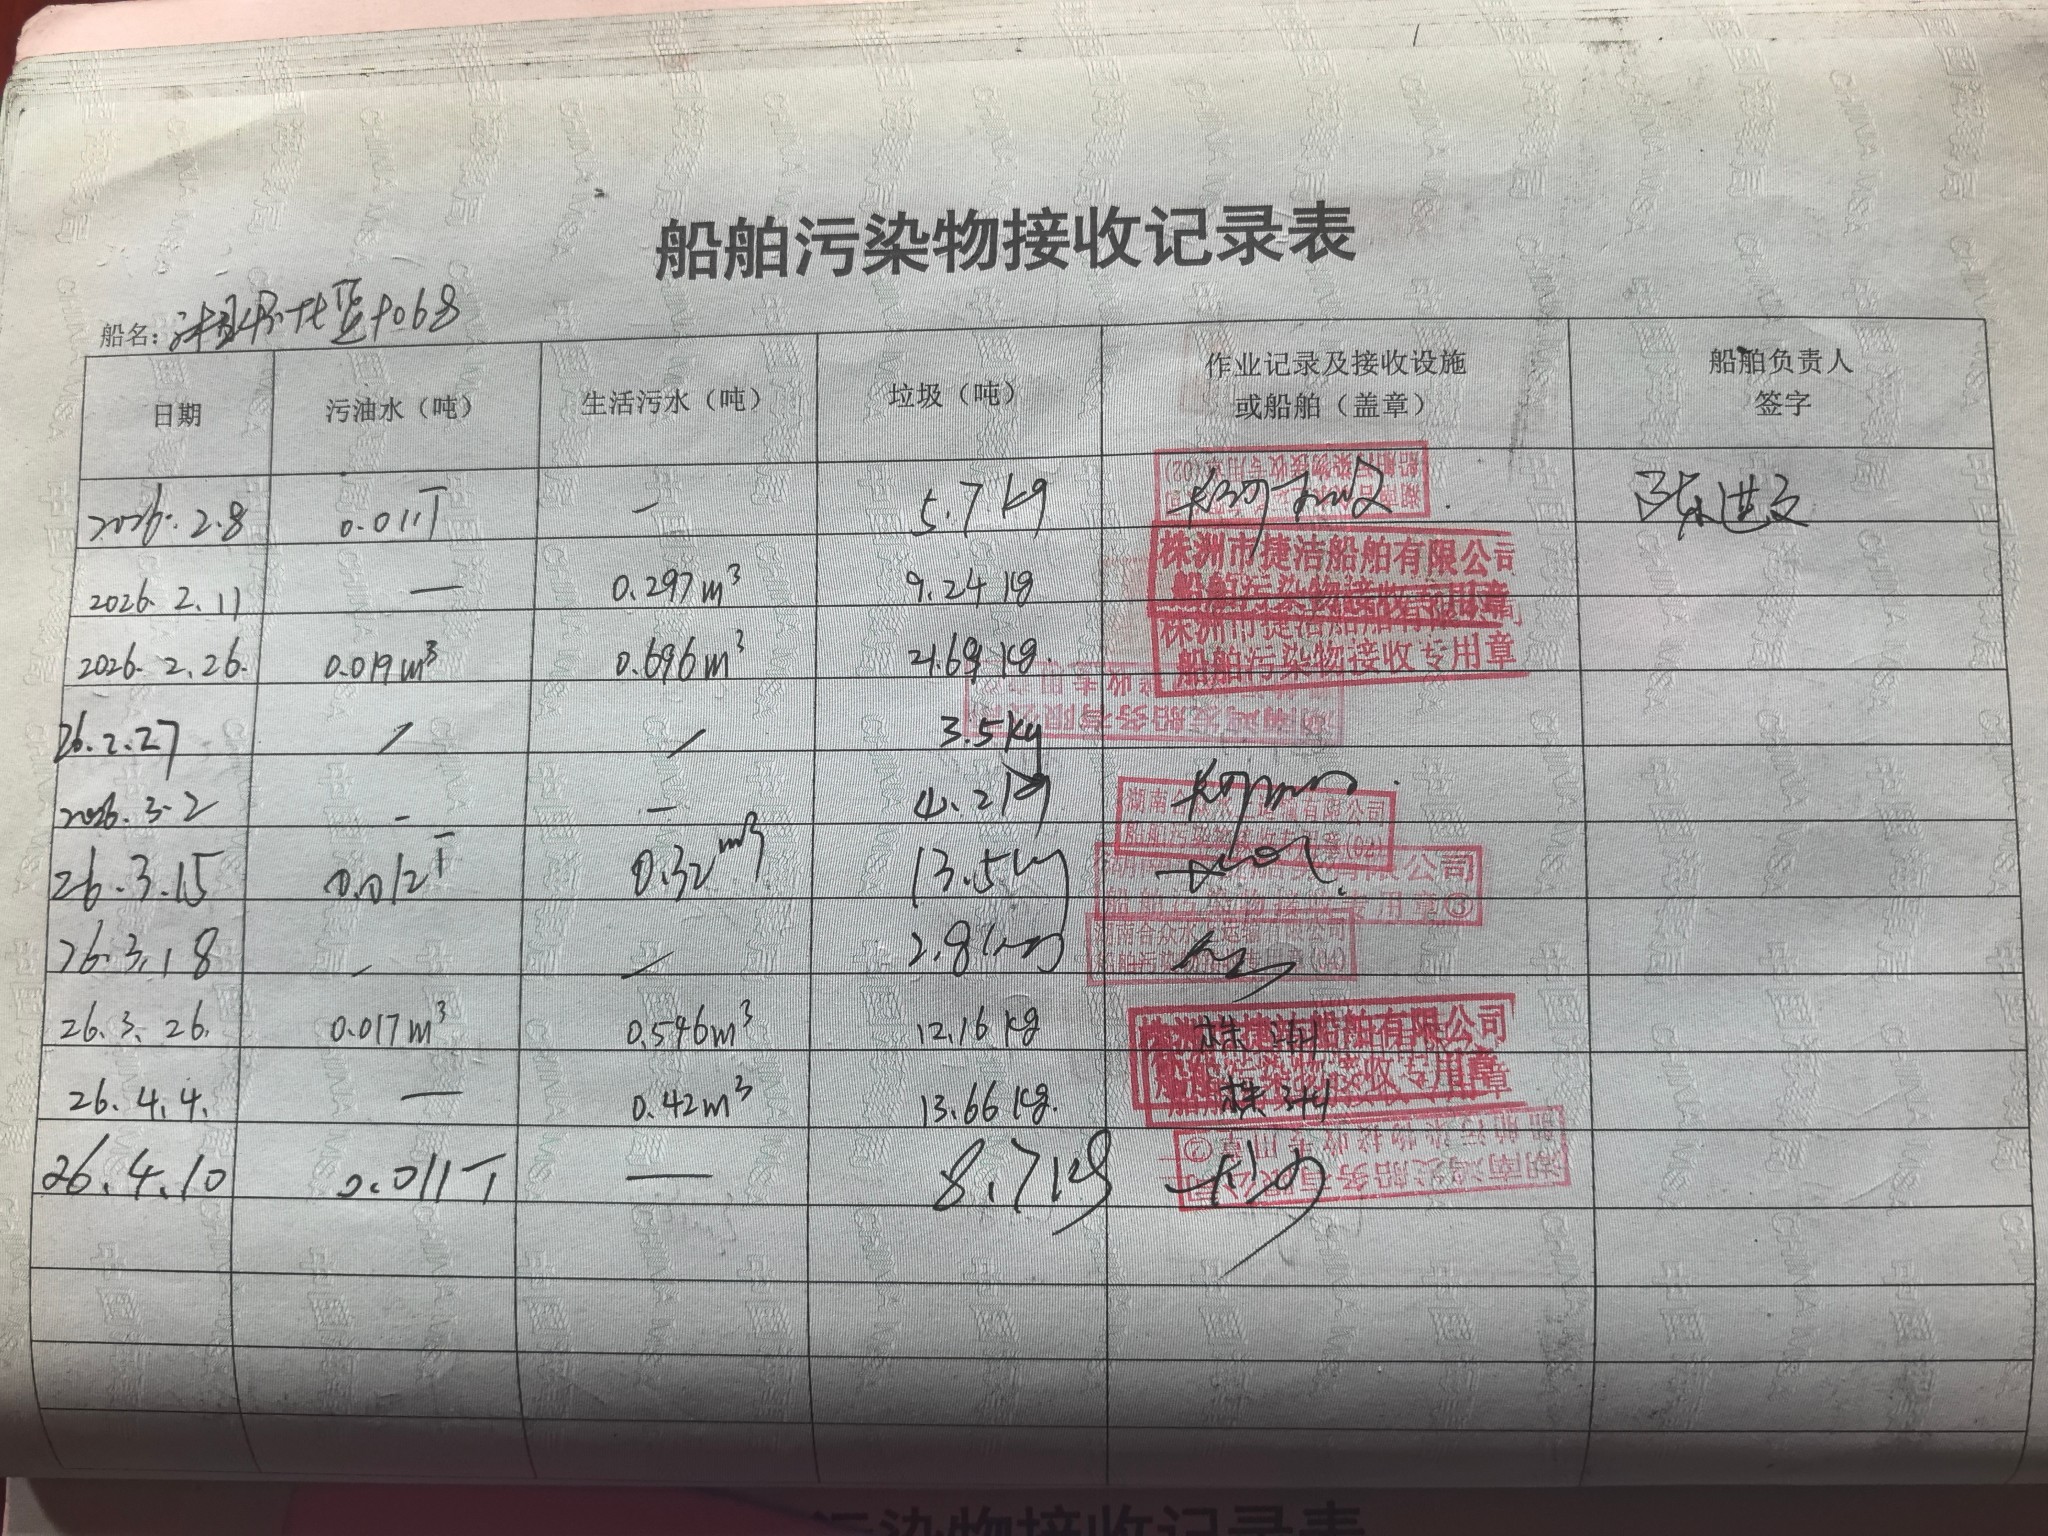 船舶污染物接收记录表
船名: 9068
日期 污油水（吨） 生活污水（吨） 垃圾（吨） 作业记录及接收设施或船舶（盖章） 船舶负责人签字
2026.2.8 0.011T — 5.7kg 陈进文
2026.2.11 — 0.297m³ 9.24kg
株洲市捷洁船舶有限公司
船舶污染物接收专用章
2026.2.26. 0.019m³ 0.696m³ 21.69kg.
株洲市捷洁船舶有限公司
船舶污染物接收专用章
26.2.27 / / 3.5kg
2026.3.2 - — 4.2kg
26.3.15 0.012T 0.32m³ 13.5kg
船舶污染物接收专用章③
26.3.18 / / 2.8kg
湖南合众水上运输有限公司
船舶污染物接收专用章(04)
26.3.26. 0.017m³ 0.546m³ 12.16kg 株洲
株洲市捷洁船舶有限公司
船舶污染物接收专用章
26.4.4. — 0.42m³ 13.66kg. 株洲
26.4.10 0.011T — 8.7kg
污染物接收记录表